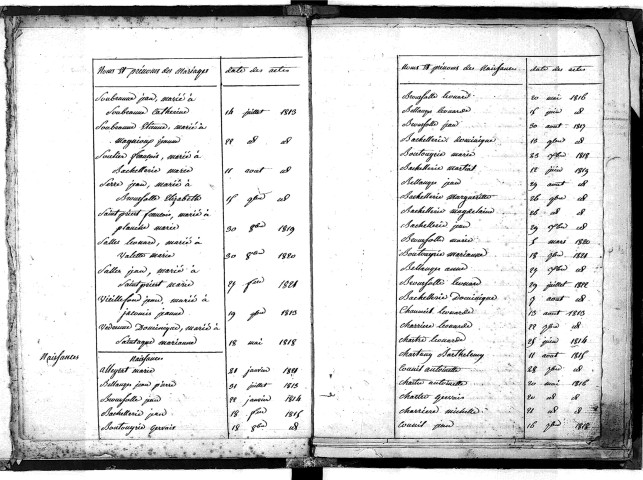 Noms et prénoms des Mariages date des actes
Soubranne jean, marié à
Soubranne Catherine 14 juillet 1813
Soubranne Etienne, marié à
jeanne 22 d
Soulier françois, marié à
Bachellerie marie 11 aout d
Serre jean, marié à
Broussolle Elizabeth 15 9bre d
Saintpriest francois, marié à
planche marie 30 8bre 1819
Salles leonard, marié à
Valette marie 30 8bre 1820
Salles jean, marié à
Saintpriest marie 27 fev 1821
Vieillefond jean, marié à
jeanne 19 9bre 1813
Dominique, marié à
marianne 18 mai 1818
Naissances
Naissances
alleyrat marie 21 janvier 1821
Bellauge jean pierre 31 juillet 1813
Broussolle jean 22 janvier 1814
Bachellerie jean 18 fev 1815
Boutouyrie gervais 18 8bre d
Noms et prénoms des Naissances date des actes
Broussolle leonard 20 mai 1816
Bellauge leonarde 15 juin d
Broussolle jean 30 aout 1817
Bachellerie dominique 13 9bre d
Boutouyrie marie 23 1818
Bachellerie martial 12 juin 1819
Bellauge jean 29 aout d
Bachellerie marguerite 26 9bre d
Bachellerie magdelaine 26 d d
Bachellerie jean 29 d
Broussolle marie 5 mars 1820
Boutouyrie marianne 18 9bre 1821
Bellauge anne 27 d
Broussolle leonard 29 juillet 1822
Bachellerie Dominique 9 aout d
leonarde 13 aout 1813
charriere leonarde 22 9bre d
leonarde 25 juin 1814
Barthelemy 11 aout 1815
Coueil antoinette 28 9bre d
antoinette 20 mai 1816
gervais 20 d d
charriere michelle 21 d d
Coueil jean 16 9bre 1818